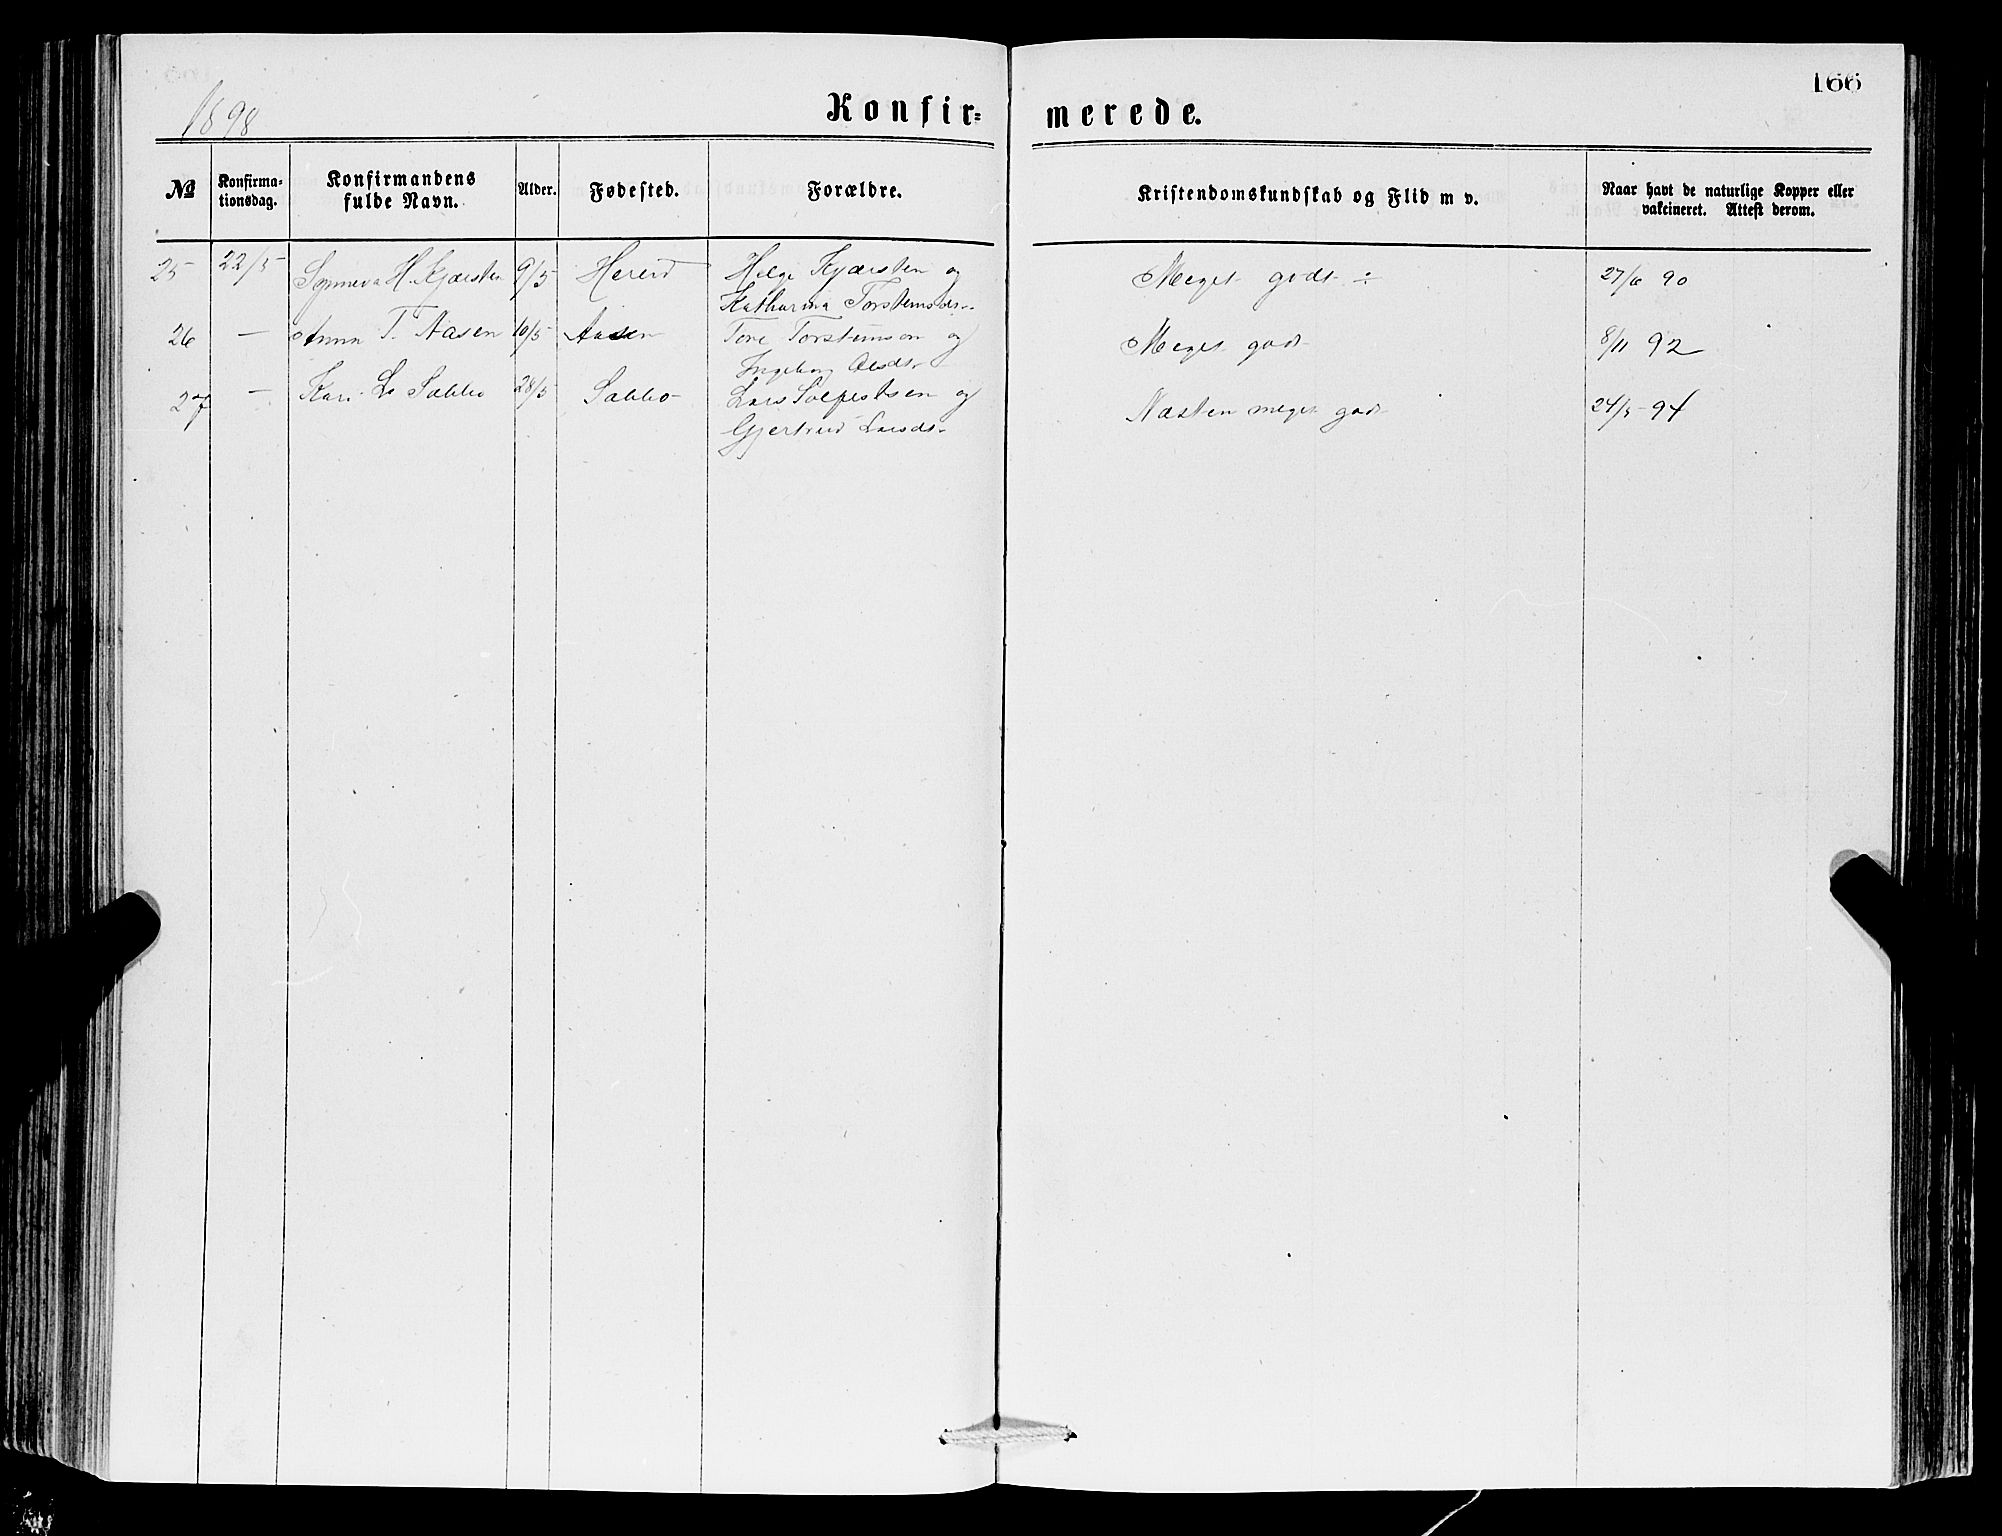 166
1898
Konfir=
merede.
№
Konfirma-
tionsdag.
Konfirmandens
fulde Navn.
Alder.
Fødested.
Forældre.
Kristendomskundskab og Flid m v.
Naar havt de naturlige Kopper eller
vakcineret. Attest derom.
25 22/5 Synneva H. Kjærsten 9/5 Hereid Helge Kjærsten og Meget godt ÷ 27/6 90
Katharina Torsteinsdr.
26 — Anna T. Aasen 10/5 Aasen Tore Torsteinson og Meget godt 8/11 92
Ingeborg Olsdr.
27 — Kari L. Sæbbø 28/5 Sæbbø Lars Solfestsen og Næsten meget godt 24/5 94
Gjertrud Larsdr.